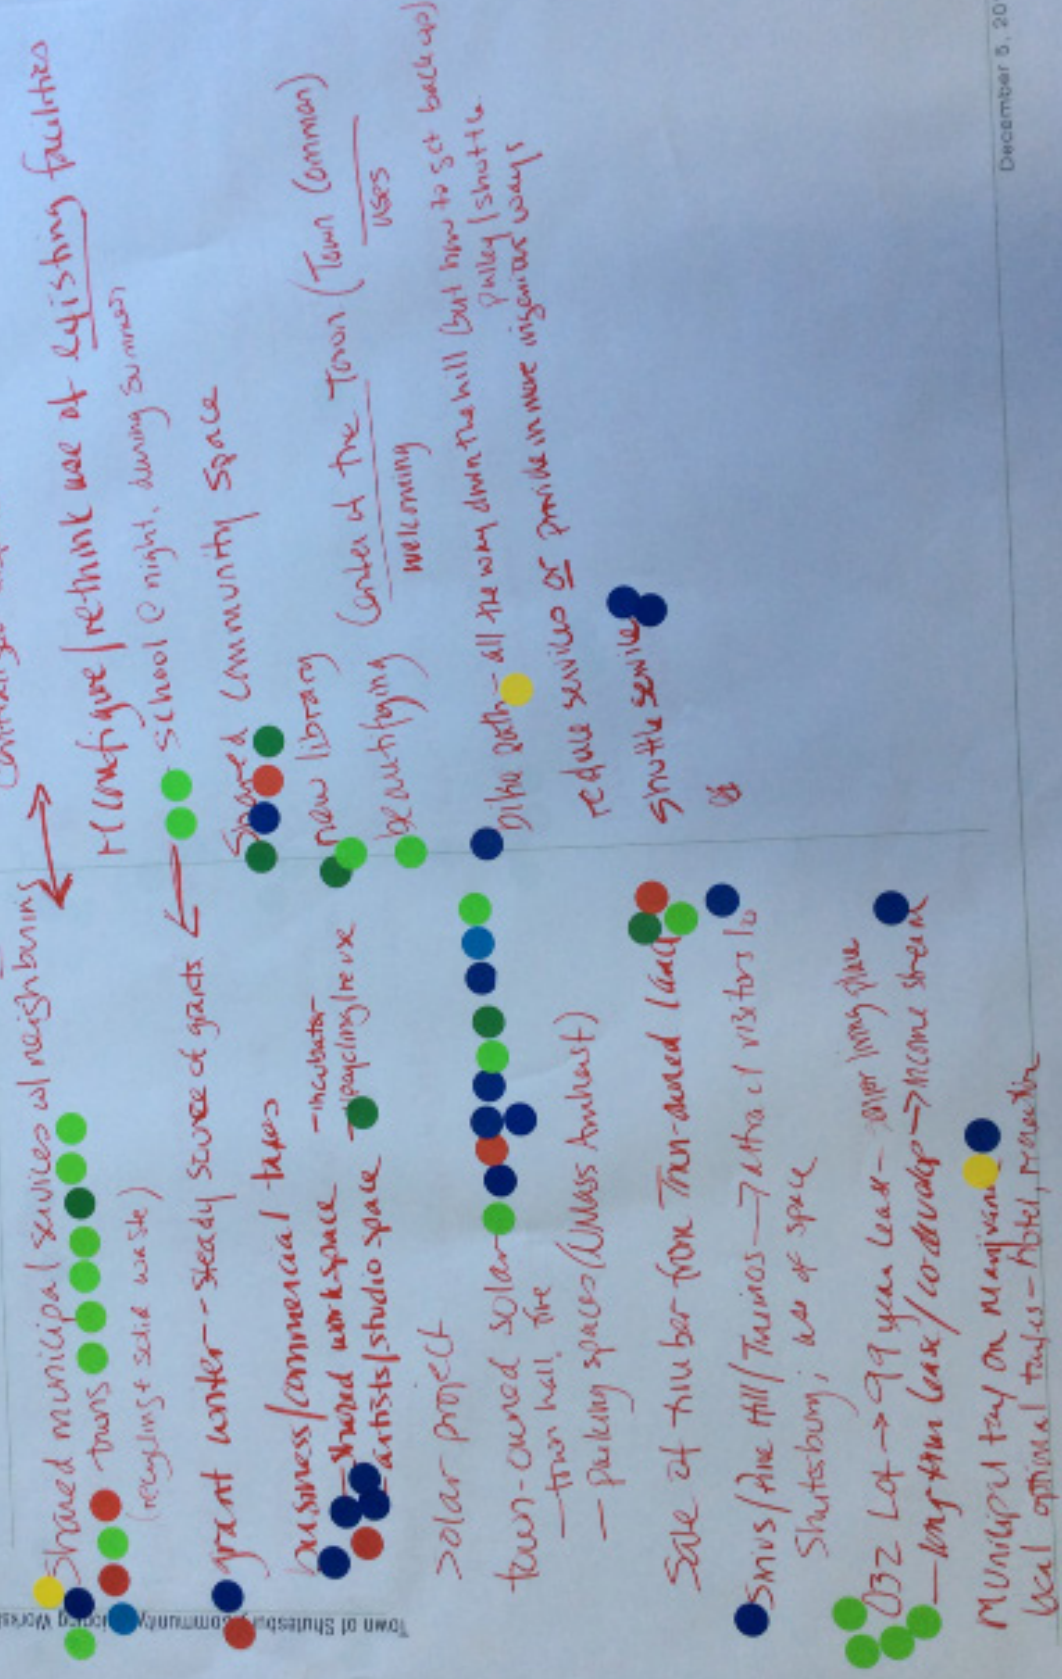 Shared municipal services w/ neighboring
towns
(recycling + solid waste)
grant writer -- steady source of grants
business/commercial taxes
- shared workspace - incubator
- artists/studio space - upcycling/reuse
solar project
town-owned solar
- town hall, fire
- parking spaces (UMass Amherst)
Sale of timber from Town-owned land
Sirius/Pine Hill/Tunings → attract visitors to
Shutesbury; use of space
032 Lot → 99 year lease - senior living place
- long term lease/co-develop → income stream
Municipal tax on marijuana
local optional taxes - hotel,
reconfigure/rethink use of existing facilities
school @ night, during summers
Shared community space
new library
beautifying
Center of the Town (Town Common)
welcoming
uses
Bike path - all the way down the hill (but how to get back up)
pulley/shuttle
reduce services or provide in more ingenious ways
shuttle service
Town of Shutesbury Community
December 5, 20